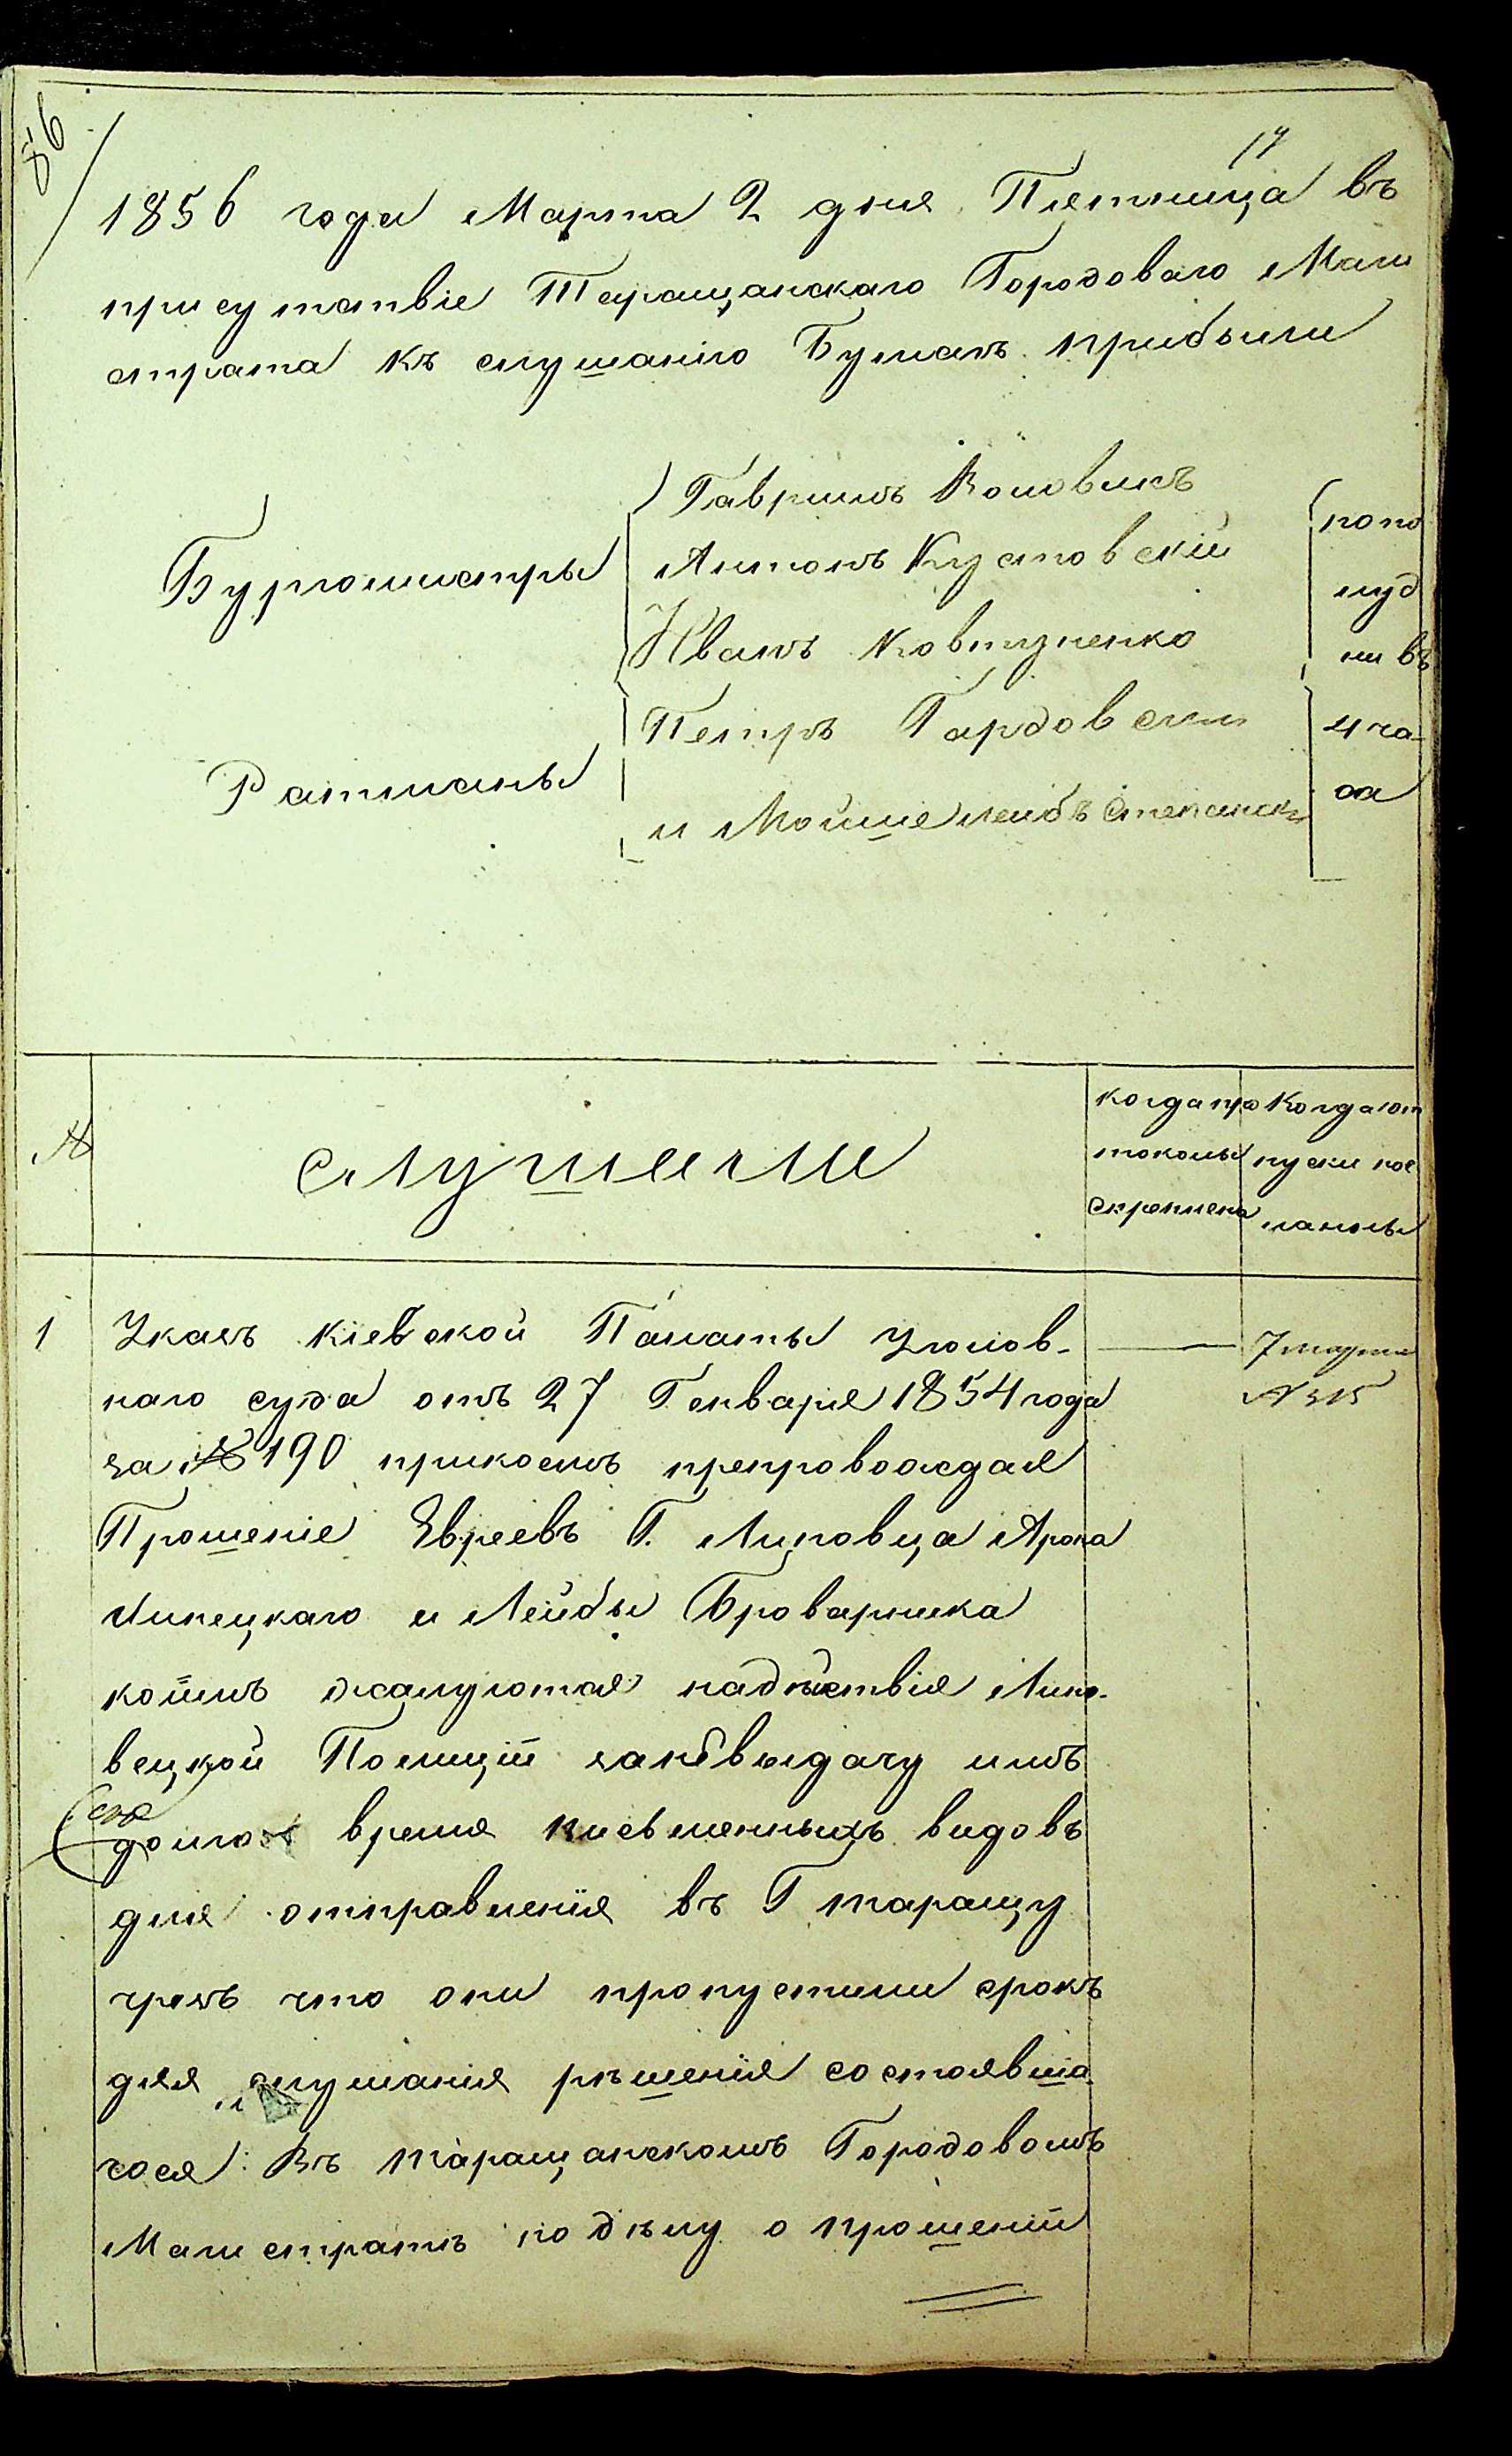 86
17
1856 года Марта 2 дня Пятница въ
присутствіе Таращанскаго Городоваго Маги
страта къ слушанію Бумагъ прибыли
Бургомистры
Гаврилъ Воловикъ
Антонъ Кустовскій
Иванъ Ковтуненко
Ратманы
Петръ Гардовскій
и Мойше Лейбъ
по по
луд
ни въ
4 ча-
са
№
слушали
когда про
токолы
скреплены
Когда от
пуски пос
ланы
1
Указъ Кіевской Палаты Уголов-
наго суда отъ 27 Генваря 1854 года
за № 190 прикоемъ препровождая
Прошеніе Евреевъ Г. Липовца Арона
Липецкаго и Лейбы Броварника
коимъ жалуются надѣйствія Липо-
вецкой Полиціи за невыдачу имъ
долго время письменныхъ видовъ
для отправленія въ Г Таращу
чрезъ что они пропустили срокъ
для слушанія рѣшенія состоявша
гося въ Таращанскомъ Городовомъ
Магистратѣ по дѣлу о прошеніи
7 марта
№ 315